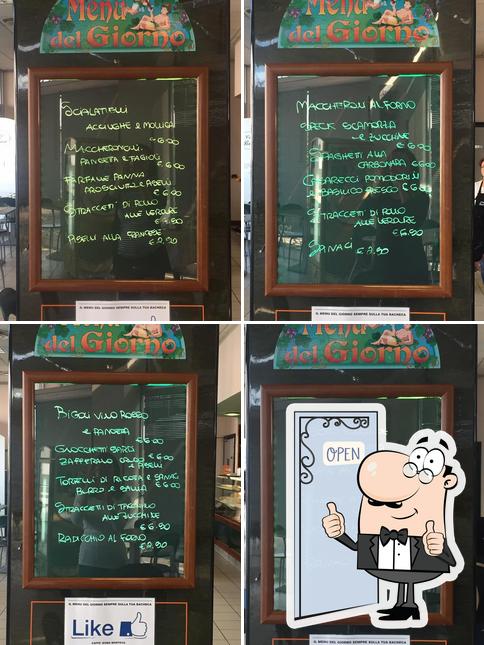 Menu
del Giorno
SCIALATIELLI
ACCIUGHE e MOLLICA
€ 6.00
MACCHERONCINI
PANCETTA e FAGIOLI
€ 6.00
FARFALLE PANNA
PROSCIUTTO e PISELLI
€ 6.00
STRACCETTI DI POLLO
ALLE VERDURE
€ 6.90
PISELLI ALLA FRANCESE
€ 2.90
IL MENU DEL GIORNO SEMPRE SULLA TUA BACHECA
Menu
del Giorno
MACCHERONI AL FORNO
SPECK SCAMORZA
e ZUCCHINE
€ 6.00
SPAGHETTI ALLA
CARBONARA € 6.00
CASARECCI POMODORINI
e BASILICO FRESCO € 6.00
STRACCETTI DI POLLO
ALLE VERDURE
€ 6.90
SPINACI
€ 2.90
IL MENU DEL GIORNO SEMPRE SULLA TUA BACHECA
del Giorno
BIGOLI VINO ROSSO
e PANCETTA
€ 6.00
GNOCCHETTI SARDI
ZAFFERANO
e PISELLI
€ 6.00
TORTELLI DI RICOTA e SPINACI
BURRO e SALVIA € 6.00
STRACCETTI DI TACCHINO
ALLE ZUCCHINE
€ 6.90
RADICCHIO AL FORNO
€ 2.90
IL MENU DEL GIORNO SEMPRE SULLA TUA BACHECA
Like
Menu
del Giorno
OPEN
IL MENU DEL GIORNO SEMPRE SULLA TUA BACHECA